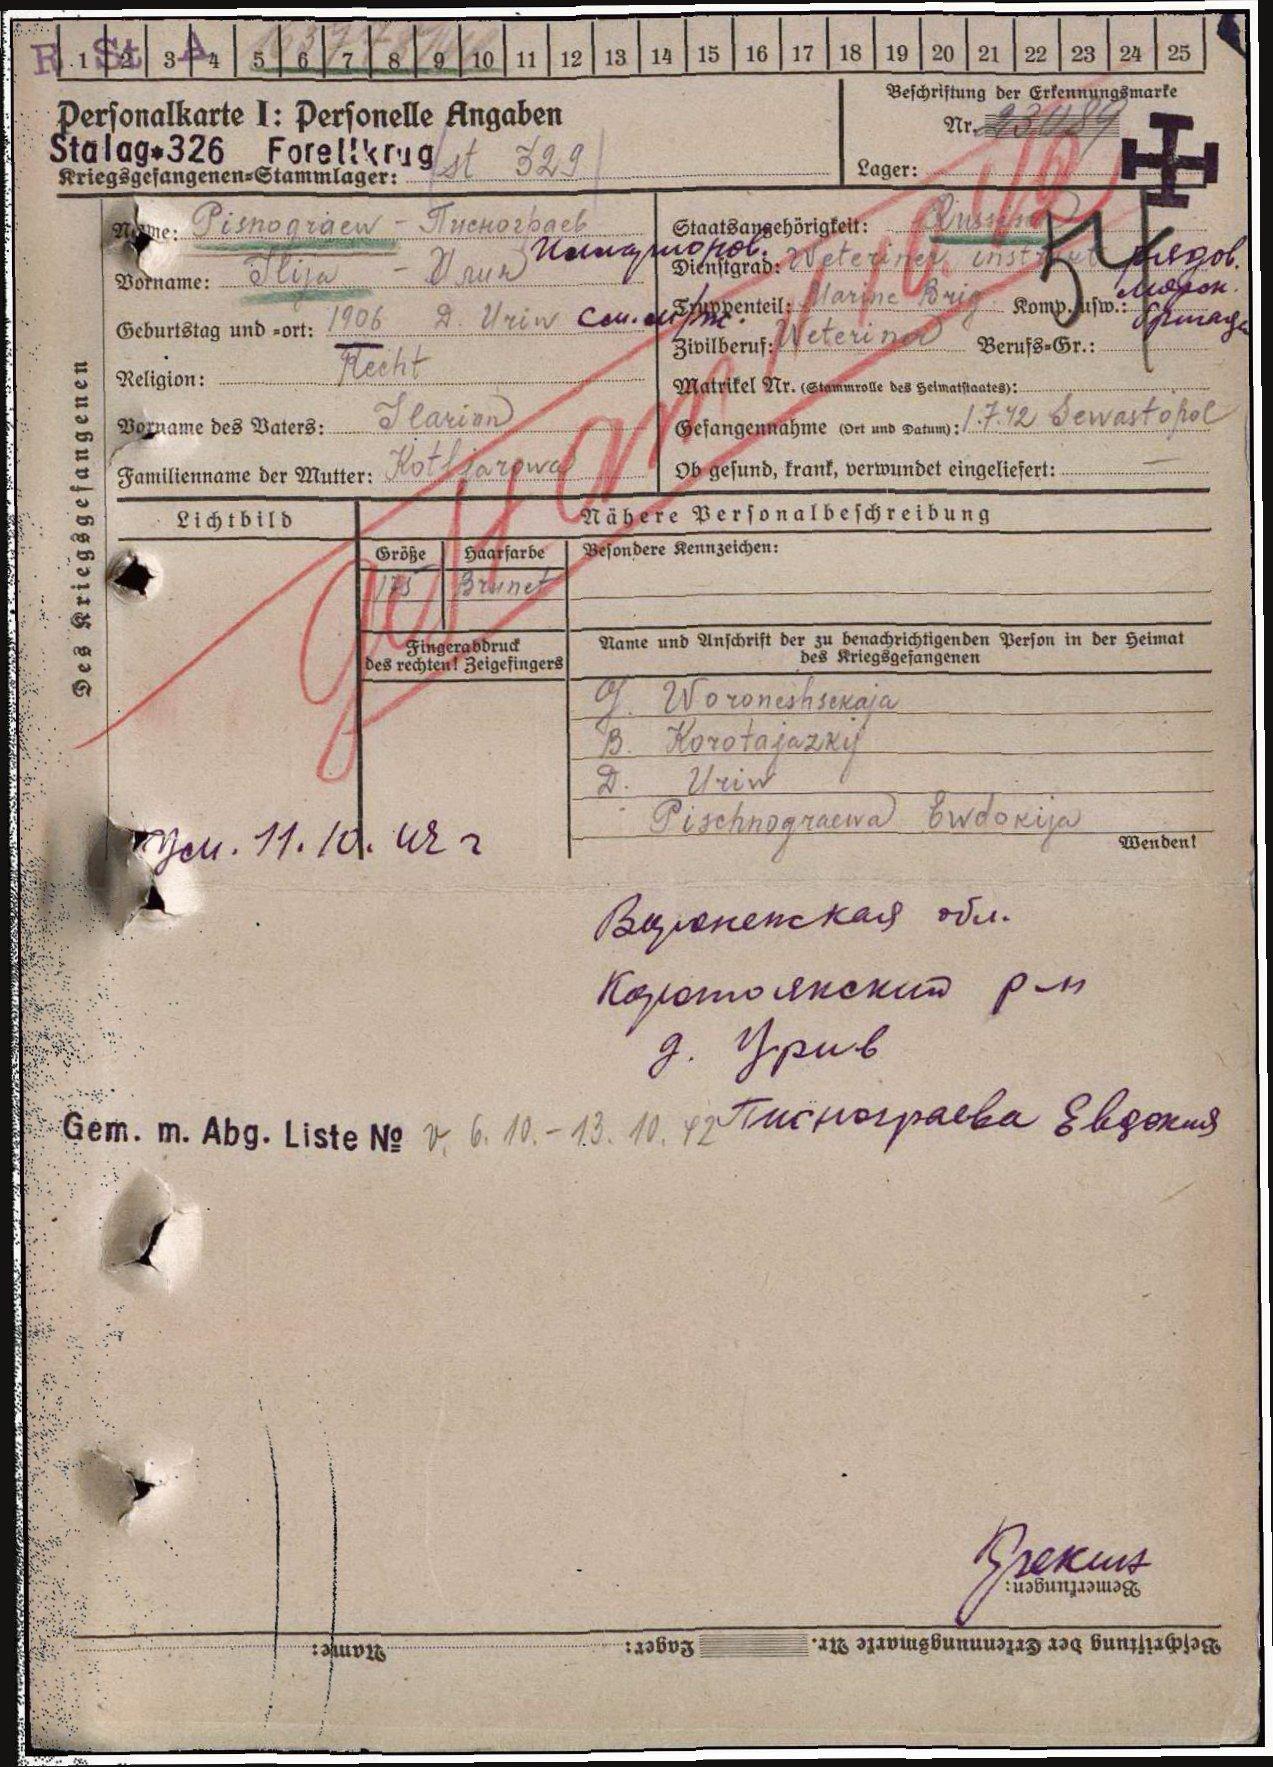 R St A
1 2 3 4 5 6 7 8 9 10 11 12 13 14 15 16 17 18 19 20 21 22 23 24 25
Personalkarte I: Personelle Angaben
Stalag 326 Forellkrug
Kriegsgefangenen-Stammlager: st 329
Beschriftung der Erkennungsmarke
Nr. 23089
Lager:
Des Kriegsgefangenen
Name: Pisnograew - Писнограев
Vorname: Ilija - Илия Илларионов.
Geburtstag und -ort: 1906 D Uriw
Religion: Recht
Vorname des Vaters: Ilarion
Familienname der Mutter: Kotljarowa
Staatsangehörigkeit: Russisch
Dienstgrad: Weteriner instrukt рядов.
Truppenteil: Marine Brig Komp. usw.: морск. бригада
Zivilberuf: Weterinar Berufs-Gr.:
Matrikel Nr. (Stammrolle des Heimatstaates):
Gefangennahme (Ort und Datum): 1.7.42 Sewastopol
Ob gesund, krank, verwundet eingeliefert: —
Lichtbild
Nähere Personalbeschreibung
Größe Haarfarbe Besondere Kennzeichen:
175 Brunet
Fingerabdruck
des rechten! Zeigefingers
Name und Anschrift der zu benachrichtigenden Person in der Heimat
des Kriegsgefangenen
G. Woroneshskaja
B. Korotajazkij
D. Uriw
Pischnograewa Ewdokija
Wenden!
gestorben
Ум. 11.10.42 г
Воронежская обл.
Коротоякский р-н
д. Урив
Писнограева Евдокия
Gem. m. Abg. Liste № v. 6.10.-13.10.42
Bemerkungen:
Beschriftung der Erkennungsmarke Nr. Lager: Name: